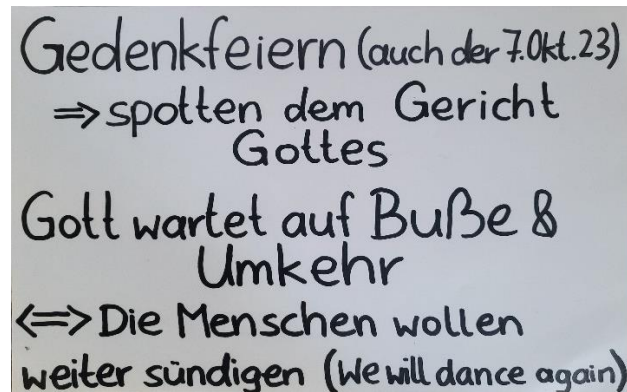 Gedenkfeiern (auch der 7.Okt.23)
=> spotten dem Gericht
Gottes
Gott wartet auf Buße &
Umkehr
<=> Die Menschen wollen
weiter sündigen (We will dance again)